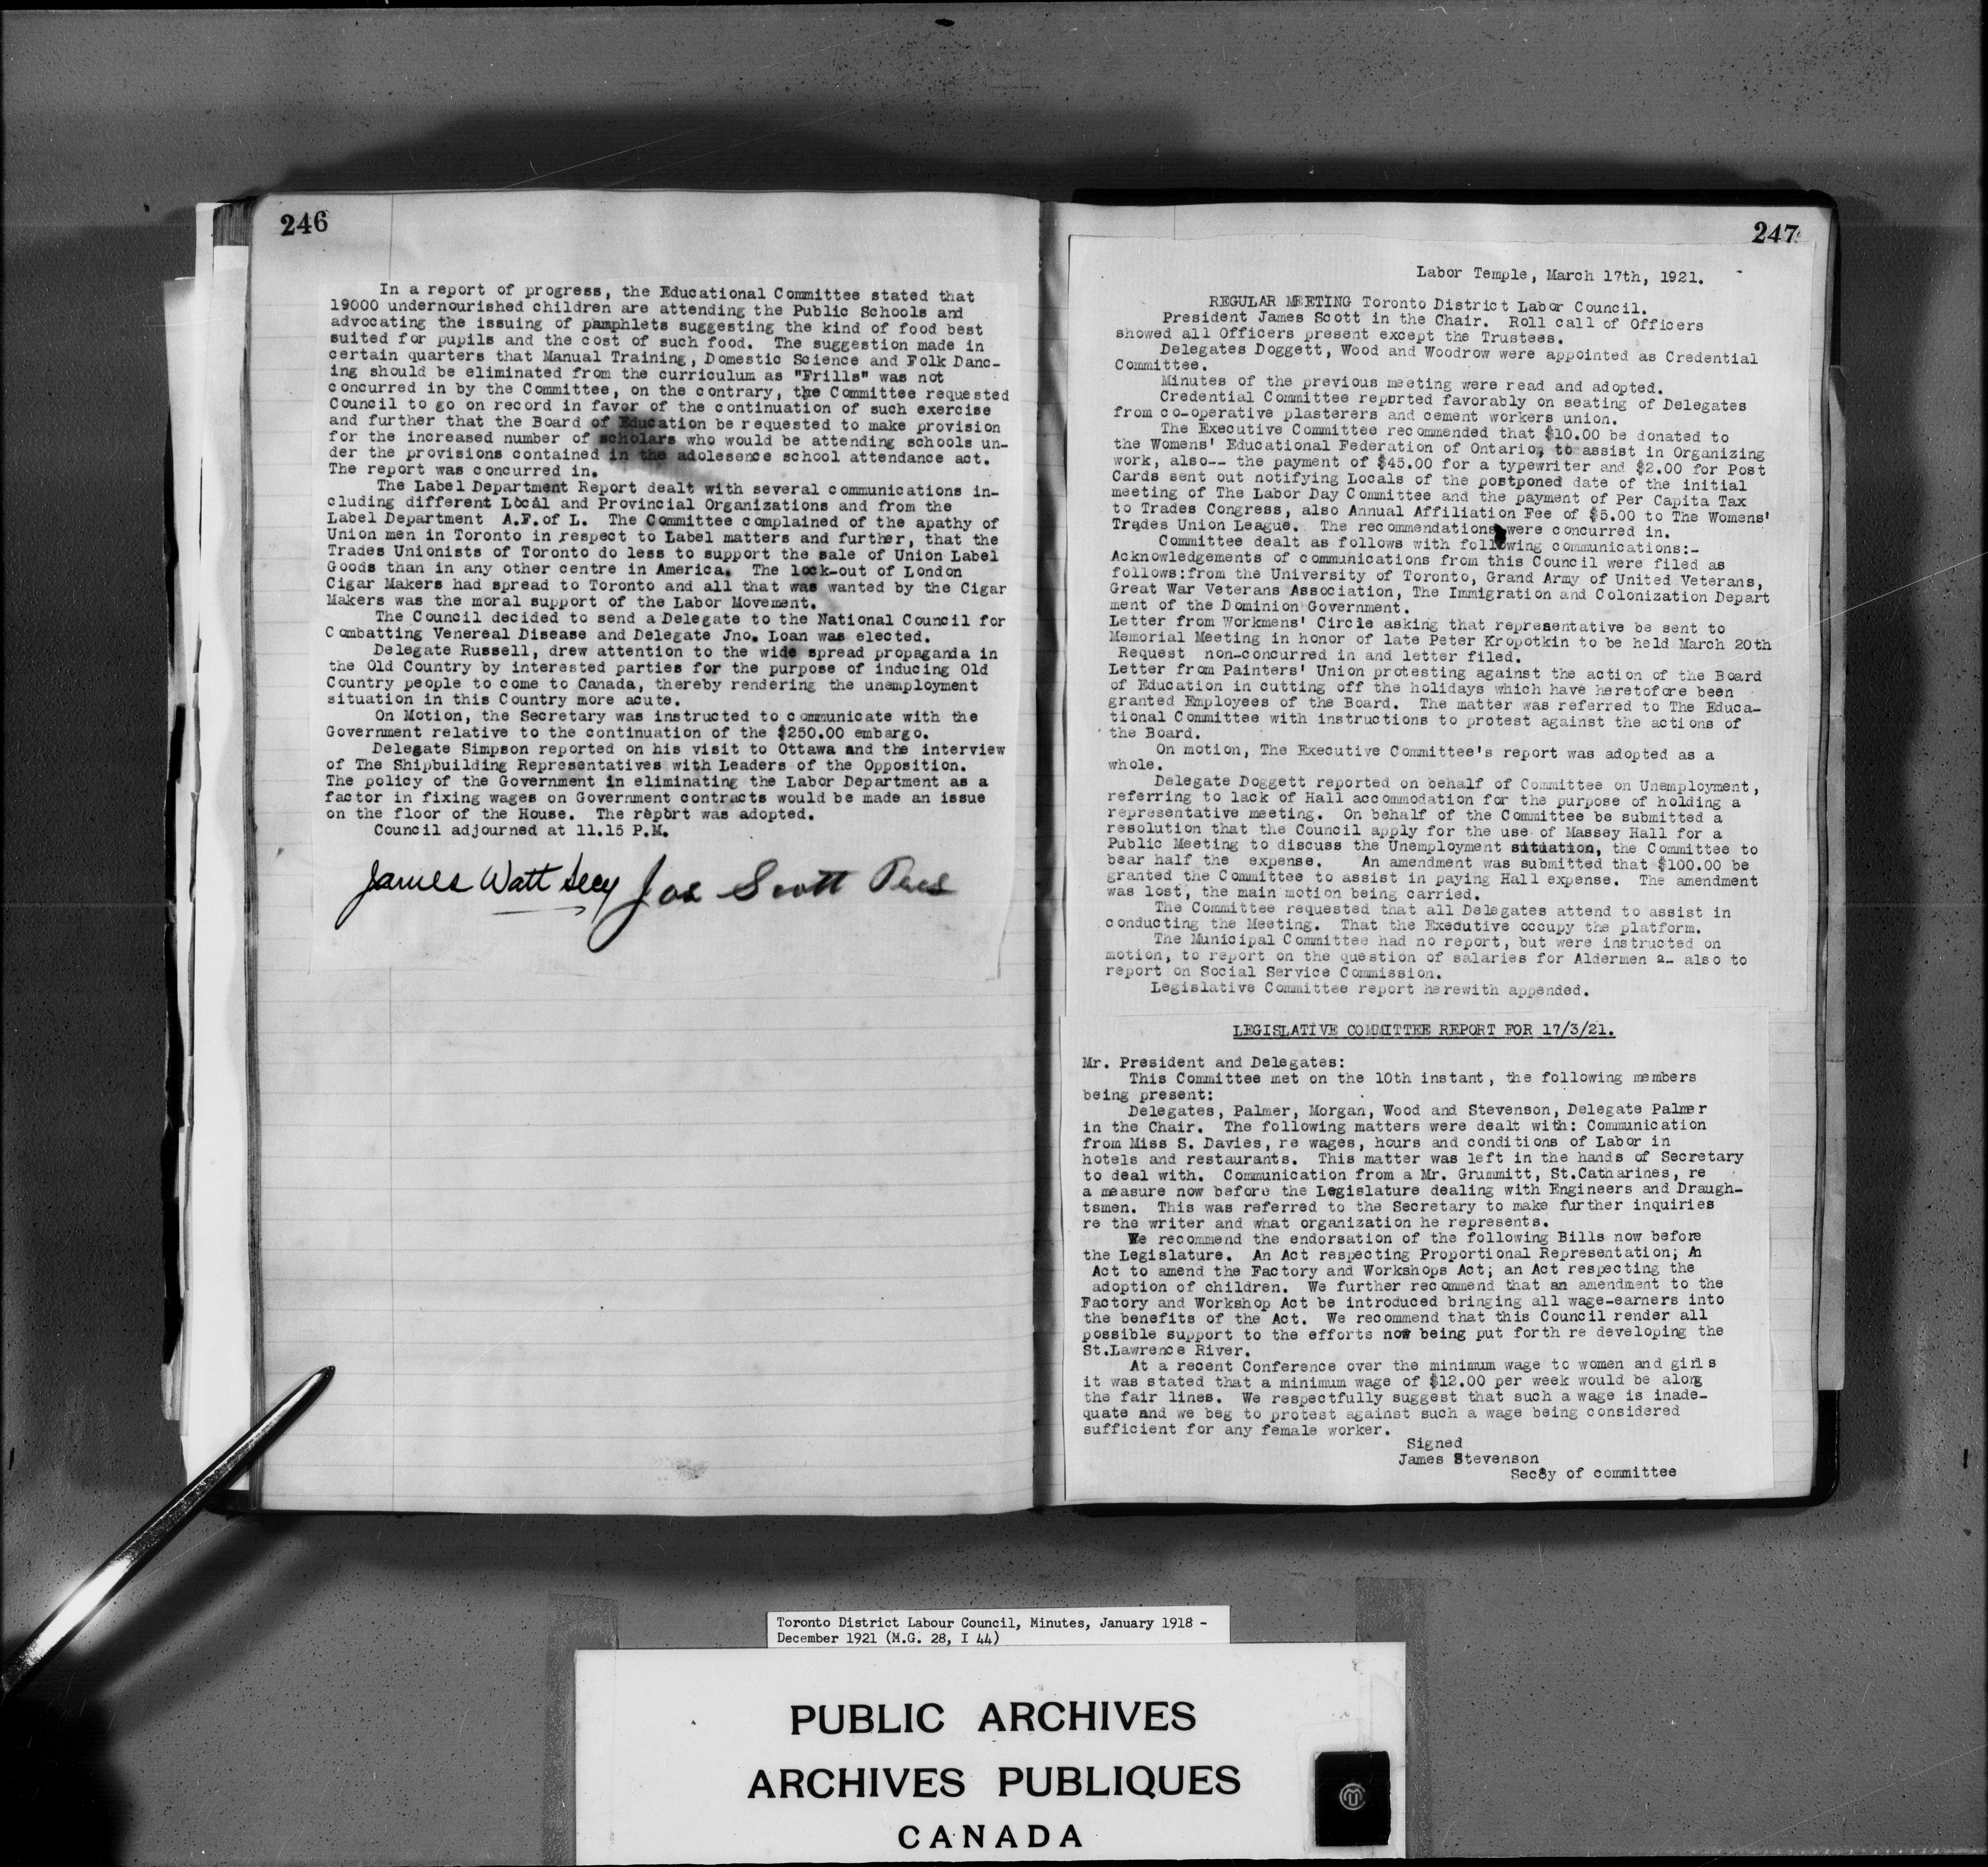 246
In a report of progress, the Educational Committee stated that
19000 undernourished children are attending the Public Schools and
advocating the issuing of pamphlets suggesting the kind of food best
suited for pupils and the cost of such food. The suggestion made in
certain quarters that Manual Training, Domestic Science and Folk Danc-
ing should be eliminated from the curriculum as "Frills" was not
concurred in by the Committee, on the contrary, the Committee requested
Council to go on record in favor of the continuation of such exercise
and further that the Board of Education be requested to make provision
for the increased number of scholars who would be attending schools un-
der the provisions contained in the adolesence school attendance act.
The report was concurred in.
The Label Department Report dealt with several communications in-
cluding different Local and Provincial Organizations and from the
Label Department A.F.of L. The Committee complained of the apathy of
Union men in Toronto in respect to Label matters and further, that the
Trades Unionists of Toronto do less to support the sale of Union Label
Goods than in any other centre in America. The lock-out of London
Cigar Makers had spread to Toronto and all that was wanted by the Cigar
Makers was the moral support of the Labor Movement.
The Council decided to send a Delegate to the National Council for
Combatting Venereal Disease and Delegate Jno. Loan was elected.
Delegate Russell, drew attention to the wide spread propaganda in
the Old Country by interested parties for the purpose of inducing Old
Country people to come to Canada, thereby rendering the unemployment
situation in this Country more acute.
On Motion, the Secretary was instructed to communicate with the
Government relative to the continuation of the $250.00 embargo.
Delegate Simpson reported on his visit to Ottawa and the interview
of The Shipbuilding Representatives with Leaders of the Opposition.
The policy of the Government in eliminating the Labor Department as a
factor in fixing wages on Government contracts would be made an issue
on the floor of the House. The report was adopted.
Council adjourned at 11.15 P.M.
James Watt Secy Jas Scott Pres
247
Labor Temple, March 17th, 1921.
REGULAR MEETING Toronto District Labor Council.
President James Scott in the Chair. Roll call of Officers
showed all Officers present except the Trustees.
Delegates Doggett, Wood and Woodrow were appointed as Credential
Committee.
Minutes of the previous meeting were read and adopted.
Credential Committee reported favorably on seating of Delegates
from co-operative plasterers and cement workers union.
The Executive Committee recommended that $10.00 be donated to
the Womens' Educational Federation of Ontario, to assist in Organizing
work, also-- the payment of $45.00 for a typewriter and $2.00 for Post
Cards sent out notifying Locals of the postponed date of the initial
meeting of The Labor Day Committee and the payment of Per Capita Tax
to Trades Congress, also Annual Affiliation Fee of $5.00 to The Womens'
Trades Union League. The recommendations were concurred in.
Committee dealt as follows with following communications:-
Acknowledgements of communications from this Council were filed as
follows:from the University of Toronto, Grand Army of United Veterans,
Great War Veterans Association, The Immigration and Colonization Depart
ment of the Dominion Government.
Letter from Workmens' Circle asking that representative be sent to
Memorial Meeting in honor of late Peter Kropotkin to be held March 20th
Request non-concurred in and letter filed.
Letter from Painters' Union protesting against the action of the Board
of Education in cutting off the holidays which have heretofore been
granted Employees of the Board. The matter was referred to The Educa-
tional Committee with instructions to protest against the actions of
the Board.
On motion, The Executive Committee's report was adopted as a
whole.
Delegate Doggett reported on behalf of Committee on Unemployment,
referring to lack of Hall accommodation for the purpose of holding a
representative meeting. On behalf of the Committee be submitted a
resolution that the Council apply for the use of Massey Hall for a
Public Meeting to discuss the Unemployment situation, the Committee to
bear half the expense. An amendment was submitted that $100.00 be
granted the Committee to assist in paying Hall expense. The amendment
was lost, the main motion being carried.
The Committee requested that all Delegates attend to assist in
conducting the Meeting. That the Executive occupy the platform.
The Municipal Committee had no report, but were instructed on
motion, to report on the question of salaries for Aldermen &- also to
report on Social Service Commission.
Legislative Committee report herewith appended.
LEGISLATIVE COMMITTEE REPORT FOR 17/3/21.
Mr. President and Delegates:
This Committee met on the 10th instant, the following members
being present:
Delegates, Palmer, Morgan, Wood and Stevenson, Delegate Palmer
in the Chair. The following matters were dealt with: Communication
from Miss S. Davies, re wages, hours and conditions of Labor in
hotels and restaurants. This matter was left in the hands of Secretary
to deal with. Communication from a Mr. Grummitt, St.Catharines, re
a measure now before the Legislature dealing with Engineers and Draugh-
tsmen. This was referred to the Secretary to make further inquiries
re the writer and what organization he represents.
We recommend the endorsation of the following Bills now before
the Legislature. An Act respecting Proportional Representation; An
Act to amend the Factory and Workshops Act; an Act respecting the
adoption of children. We further recommend that an amendment to the
Factory and Workshop Act be introduced bringing all wage-earners into
the benefits of the Act. We recommend that this Council render all
possible support to the efforts now being put forth re developing the
St.Lawrence River.
At a recent Conference over the minimum wage to women and girls
it was stated that a minimum wage of $12.00 per week would be along
the fair lines. We respectfully suggest that such a wage is inade-
quate and we beg to protest against such a wage being considered
sufficient for any female worker.
Signed
James Stevenson
Sec8y of committee
Toronto District Labour Council, Minutes, January 1918 -
December 1921 (M.G. 28, I 44)
PUBLIC ARCHIVES
ARCHIVES PUBLIQUES
CANADA